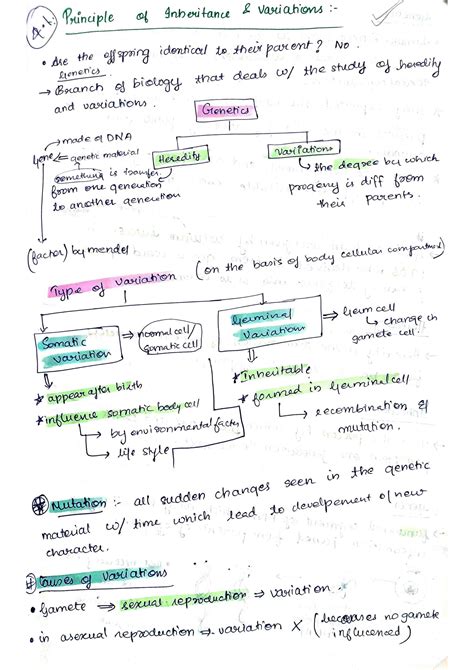 Principle of Inheritance & Variations :-
• Are the offspring identical to their parent? No.
Genetics
→ Branch of biology that deals w/ the study of heredity
and variations.
Genetics
→ made of DNA
Gene = genetic material
Heredity
Variations
something is transfer
from one generation
to another generation
↳ the degree by which
progeny is diff from
their parents.
(factor) by mendel
Type of variation
(on the basis of body cellular compartment)
Somatic
variation
⇒ normal cell/
somatic cell
Germinal
Variation
⇒ Germ cell
↳ change in
gamete cell.
* appear after birth
* influence somatic body cell
→ by environmental factor
→ life style
* Inheritable
* formed in Germinal cell
→ recombination &
mutation.
Mutation :- all sudden changes seen in the genetic
material w/ time which lead to develpement of new
character.
# Causes of Variations
• Gamete ⇒ sexual reproduction ⇒ variation.
• in asexual reproduction ⇒ variation X (becases no gamete
influenced)